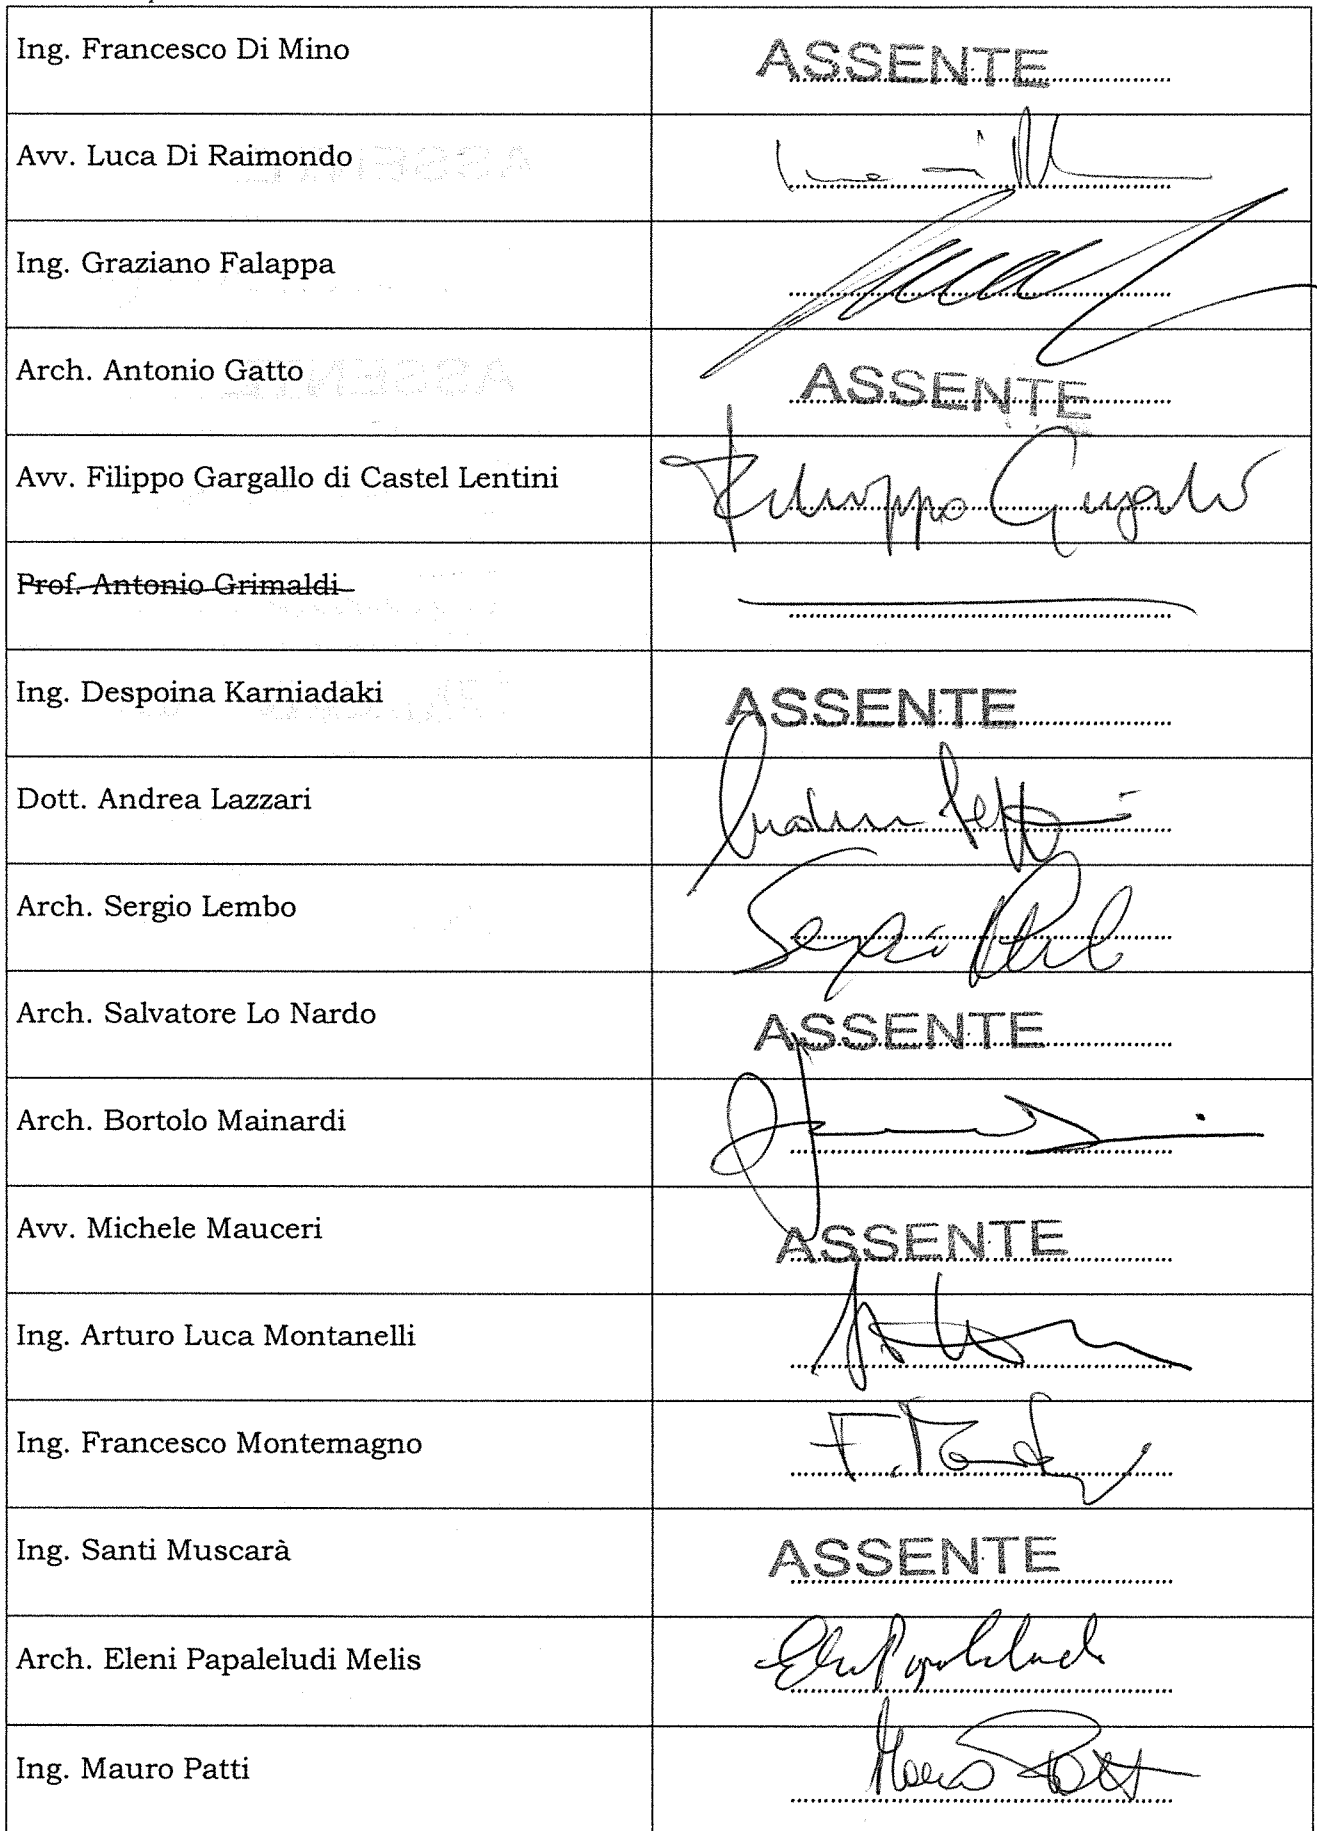 Ing. Francesco Di Mino ASSENTE
Avv. Luca Di Raimondo
Ing. Graziano Falappa
Arch. Antonio Gatto ASSENTE
Avv. Filippo Gargallo di Castel Lentini Filippo Gargallo
Prof. Antonio Grimaldi
Ing. Despoina Karniadaki ASSENTE
Dott. Andrea Lazzari
Arch. Sergio Lembo Sergio
Arch. Salvatore Lo Nardo ASSENTE
Arch. Bortolo Mainardi
Avv. Michele Mauceri ASSENTE
Ing. Arturo Luca Montanelli
Ing. Francesco Montemagno
Ing. Santi Muscarà ASSENTE
Arch. Eleni Papaleludi Melis
Ing. Mauro Patti